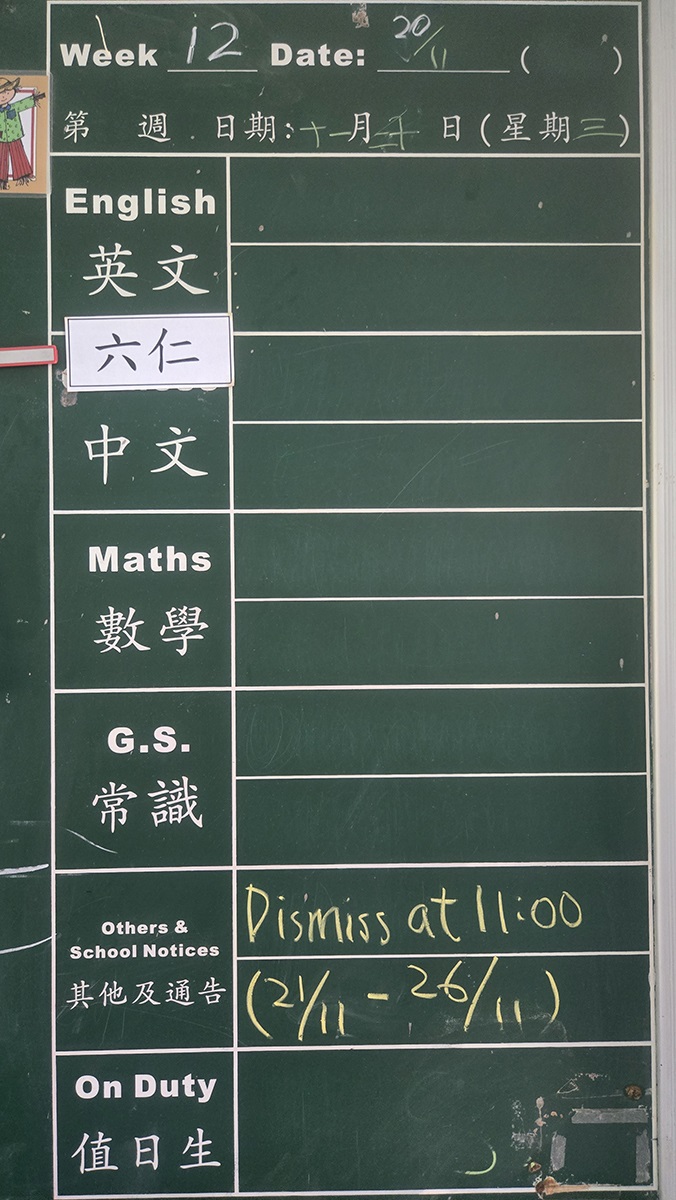 Week 12 Date: 20/11 ( )
第 週 日期:十一月二十日(星期三)
English
英文
六仁
中文
Maths
數學
G.S.
常識
Others &
School Notices
其他及通告
Dismiss at 11:00
(21/11 - 26/11)
On Duty
值日生